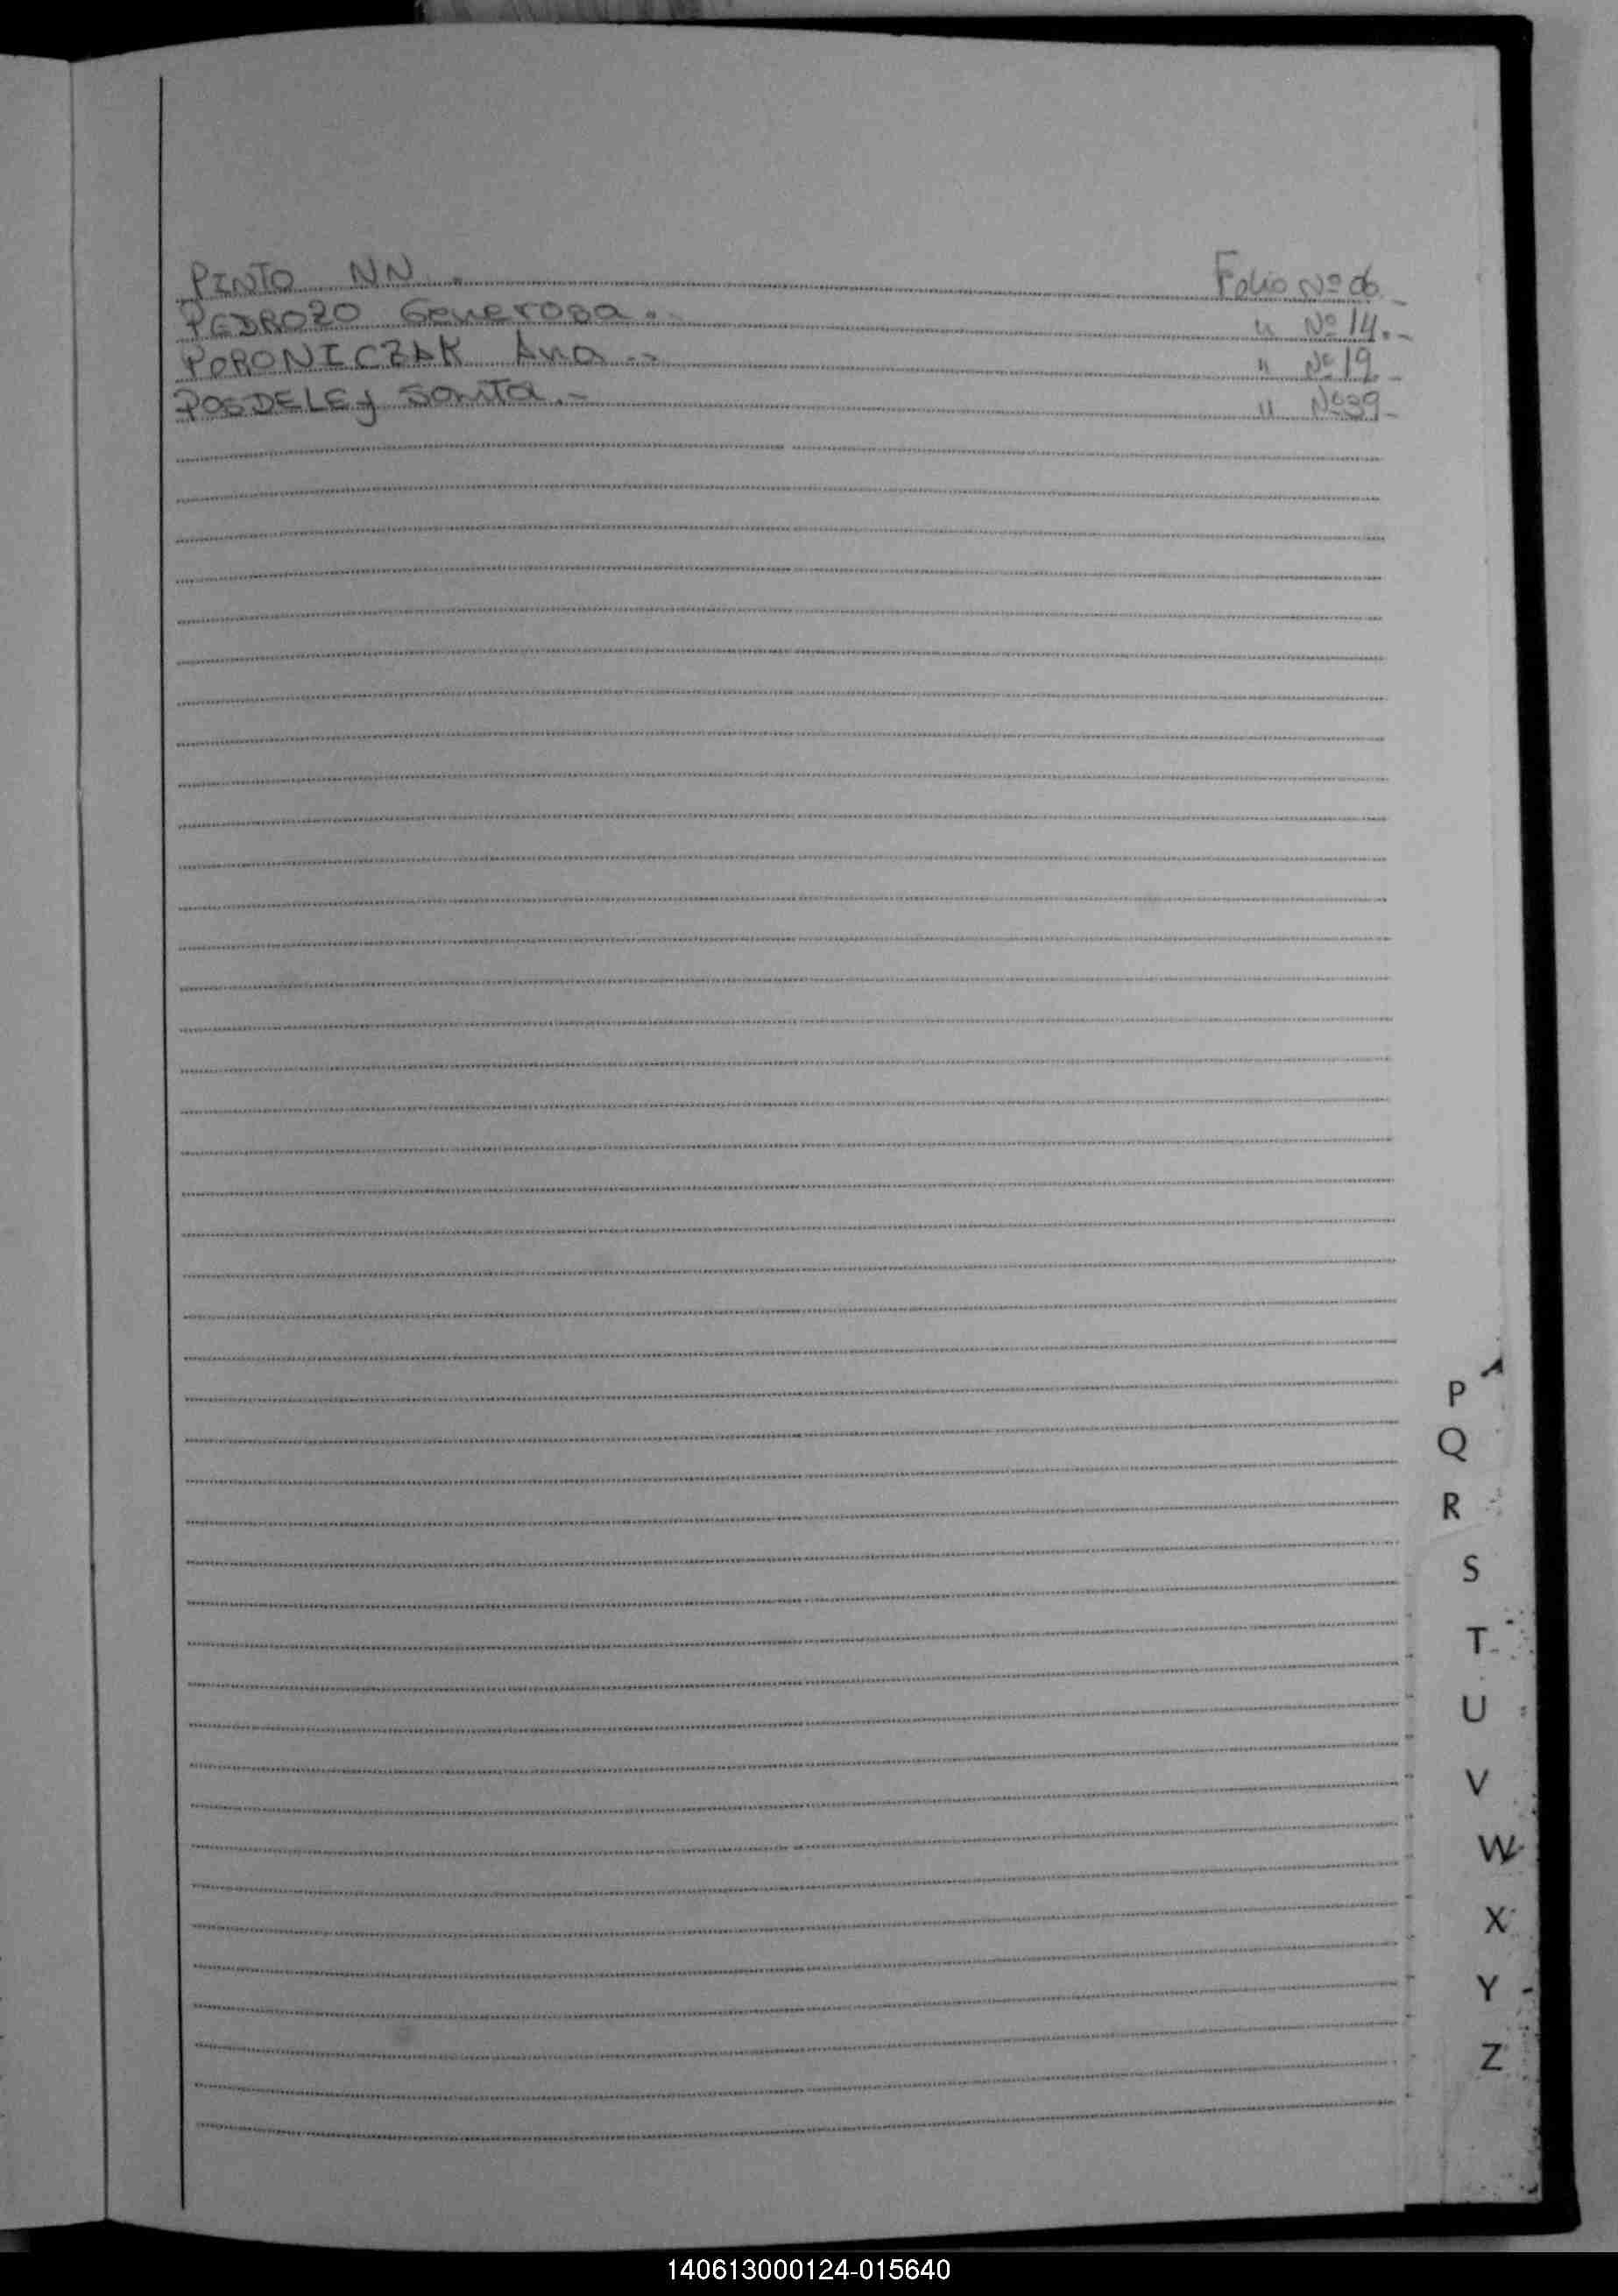 PINTO NN. Folio Nº 06.-
PEDROZO Generosa.- " Nº 14.-
PORONICZAK Ana.- " Nº 19.-
POSDELEY Santa.- " Nº 39.-
P
Q
R
S
T
U
V
W
X
Y
Z
140613000124-015640